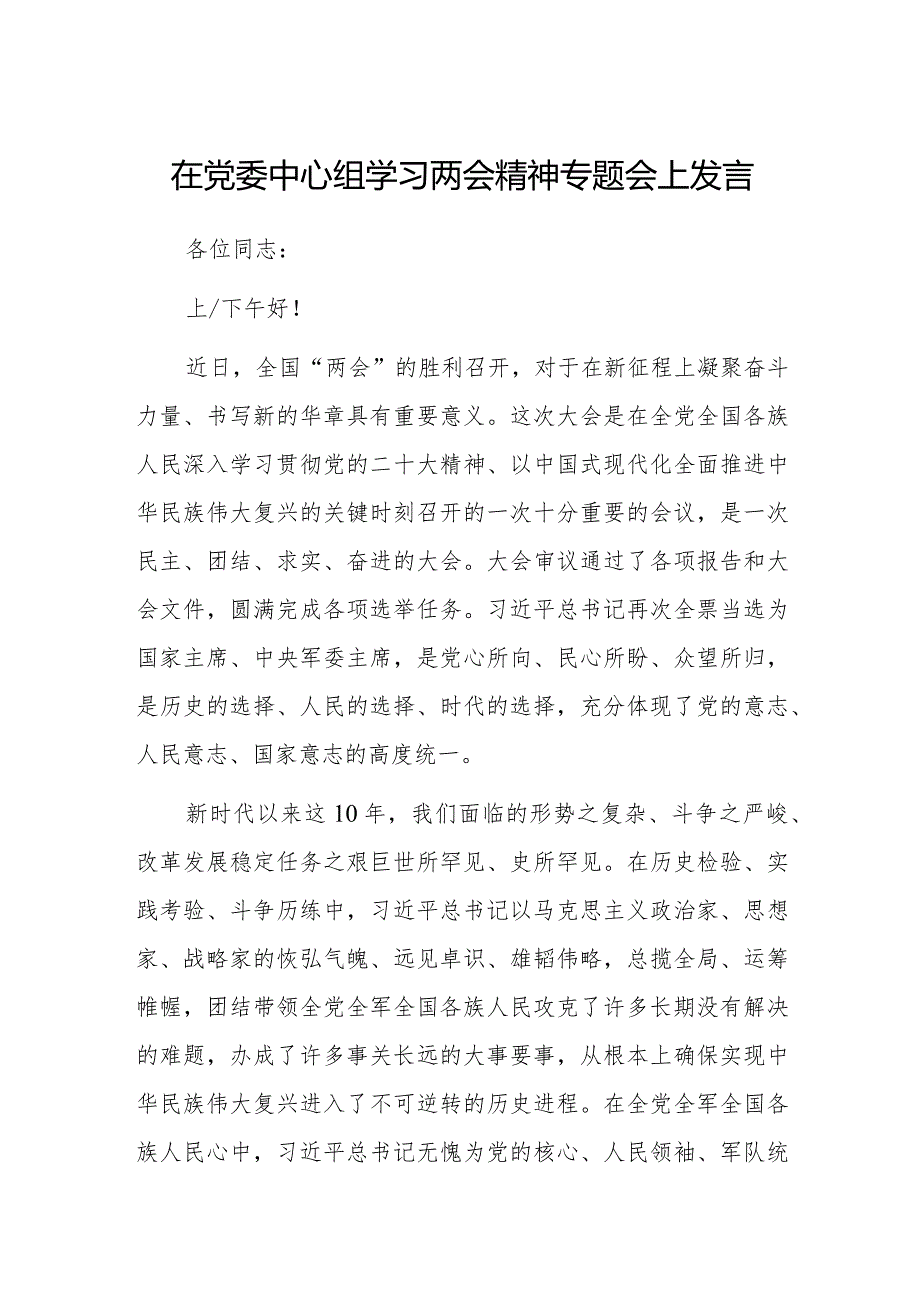 在党委中心组学习两会精神专题会上发言
各位同志：
上/下午好！
近日，全国“两会”的胜利召开，对于在新征程上凝聚奋斗
力量、书写新的华章具有重要意义。这次大会是在全党全国各族
人民深入学习贯彻党的二十大精神、以中国式现代化全面推进中
华民族伟大复兴的关键时刻召开的一次十分重要的会议，是一次
民主、团结、求实、奋进的大会。大会审议通过了各项报告和大
会文件，圆满完成各项选举任务。习近平总书记再次全票当选为
国家主席、中央军委主席，是党心所向、民心所盼、众望所归，
是历史的选择、人民的选择、时代的选择，充分体现了党的意志、
人民意志、国家意志的高度统一。
新时代以来这10年，我们面临的形势之复杂、斗争之严峻、
改革发展稳定任务之艰巨世所罕见、史所罕见。在历史检验、实
践考验、斗争历练中，习近平总书记以马克思主义政治家、思想
家、战略家的恢弘气魄、远见卓识、雄韬伟略，总揽全局、运筹
帷幄，团结带领全党全军全国各族人民攻克了许多长期没有解决
的难题，办成了许多事关长远的大事要事，从根本上确保实现中
华民族伟大复兴进入了不可逆转的历史进程。在全党全军全国各
族人民心中，习近平总书记无愧为党的核心、人民领袖、军队统